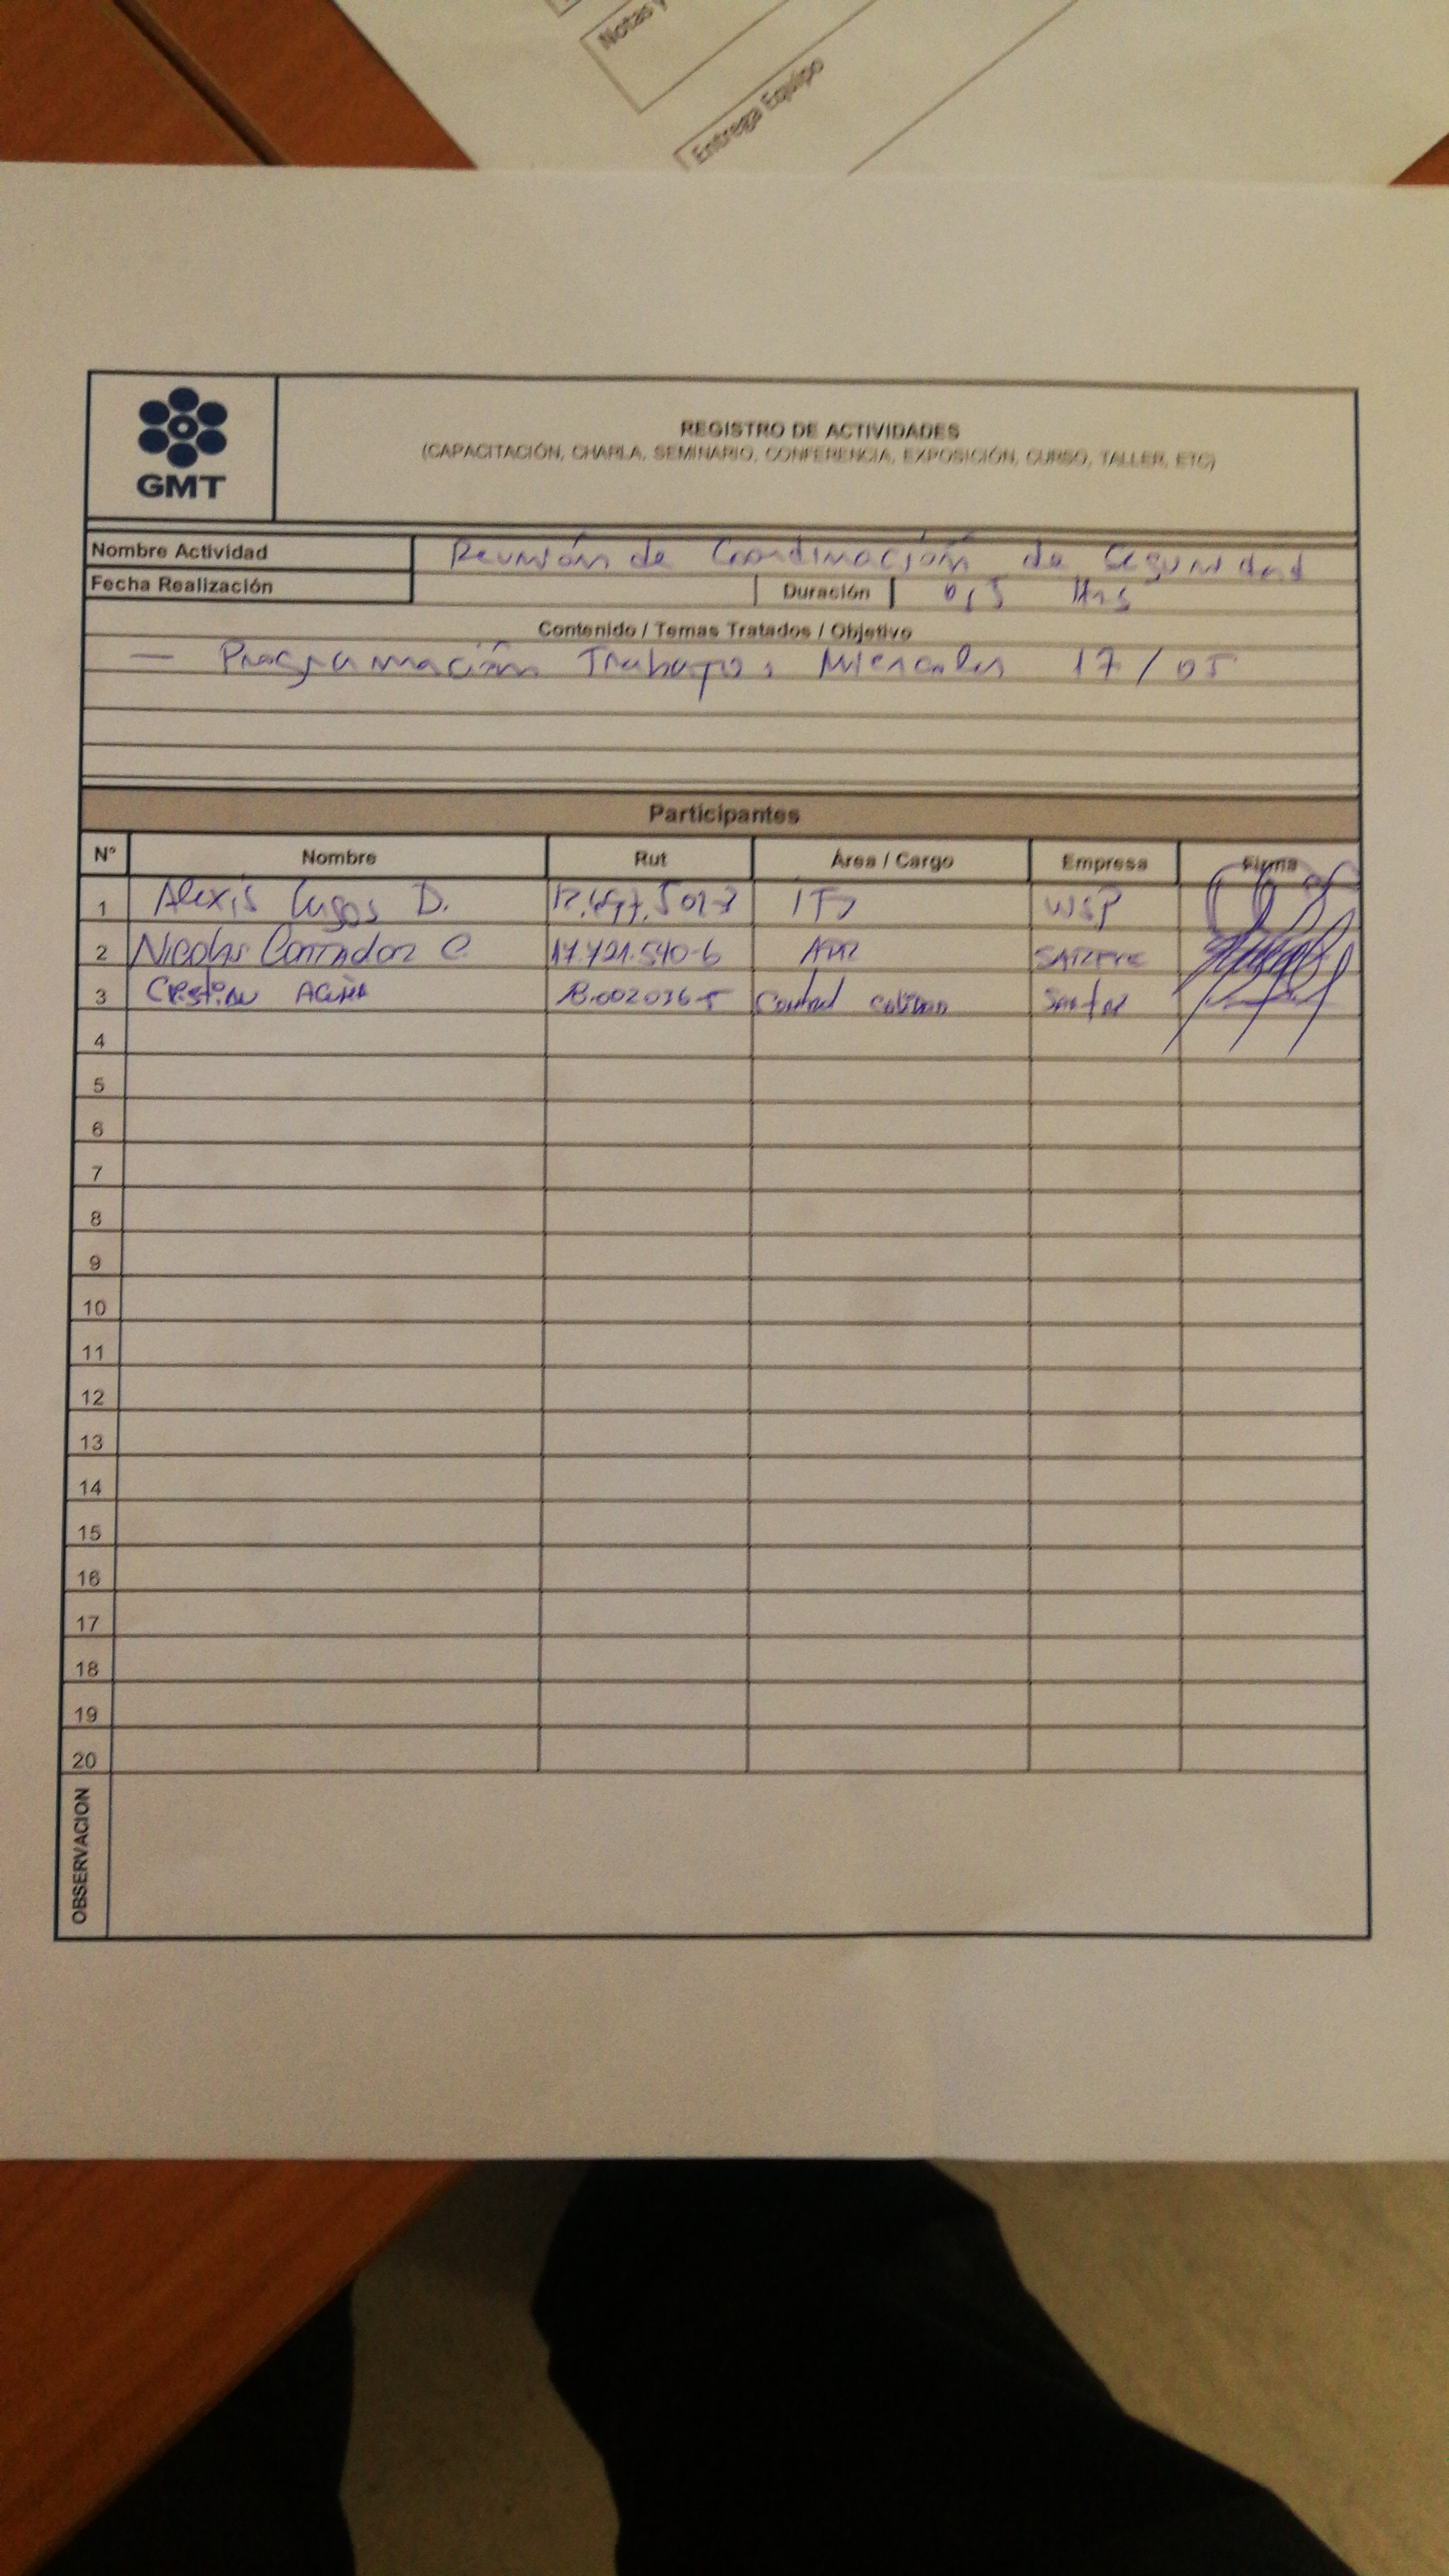 Notas y
Entrega Equipo
GMT
REGISTRO DE ACTIVIDADES
(CAPACITACIÓN, CHARLA, SEMINARIO, CONFERENCIA, EXPOSICIÓN, CURSO, TALLER, ETC)
Nombre Actividad Reunión de Coordinación de Seguridad
Fecha Realización Duración 0,5 Hrs
Contenido / Temas Tratados / Objetivo
— Programación Trabajos Miercoles 17/05
Participantes
N° Nombre Rut Área / Cargo Empresa Firma
1 Alexis Lugos D. WSP
2 Nicolas Corrador C. 17.721.540-6
3 Cristian Acuña Control
4
5
6
7
8
9
10
11
12
13
14
15
16
17
18
19
20
OBSERVACION